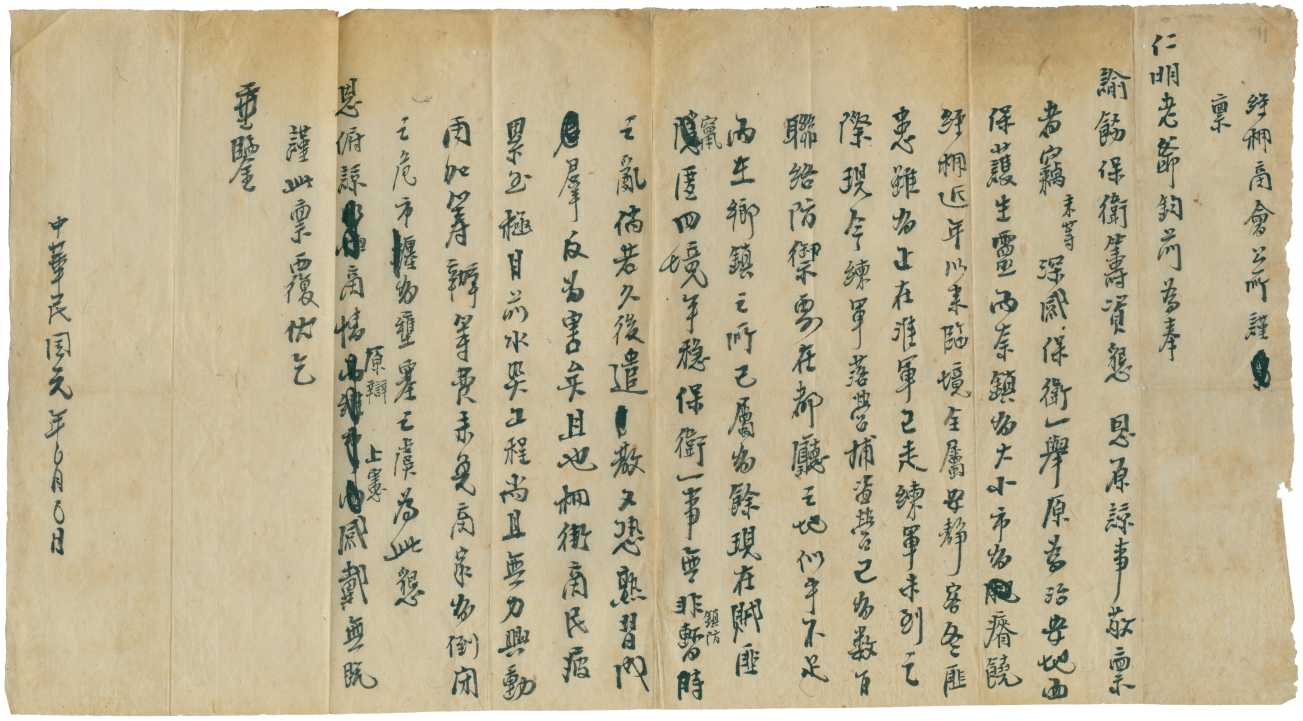 經棚商會公所謹
禀
仁明老爺鈞前為奉
諭飭保衛籌資懇 恩原諒事敬禀
者竊末等深感保衛一舉原為治安地面
保護生靈而奈鎮為大小市為瘠饒
經棚近年以來臨境全屬安靜客冬匪
患雖為上在淮軍已走練軍未到之
際現今練軍落營捕盜營已為數百
聯絡防禦要在都廳之地似乎不足
而在鄉鎮之所已屬為餘現在賊匪
竄匿四境年穩保衛一事無非鎮防暫時
之亂倘若久後遣散又恐熟習成
羣反為害矣且也棚街商民疲
累至極目前水災工程尚且無力興動
再加籌辦等費未免商家為倒閉
之危市廛為壅塞之虞為此懇
恩俯諒商情原辯上憲感戴無既
謹此禀覆伏乞
垂鑒
中華民國元年 月 日